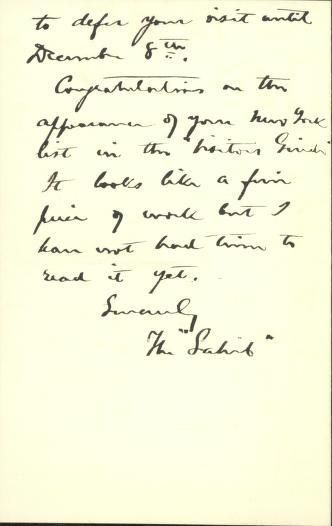 to defer your visit until
December 8th.
Congratulations on the
appearance of your New York
list in the "Visitors Guide"
It looks like a fine
piece of work but I
have not had time to
read it yet.
Sincerely
The "Sahib"